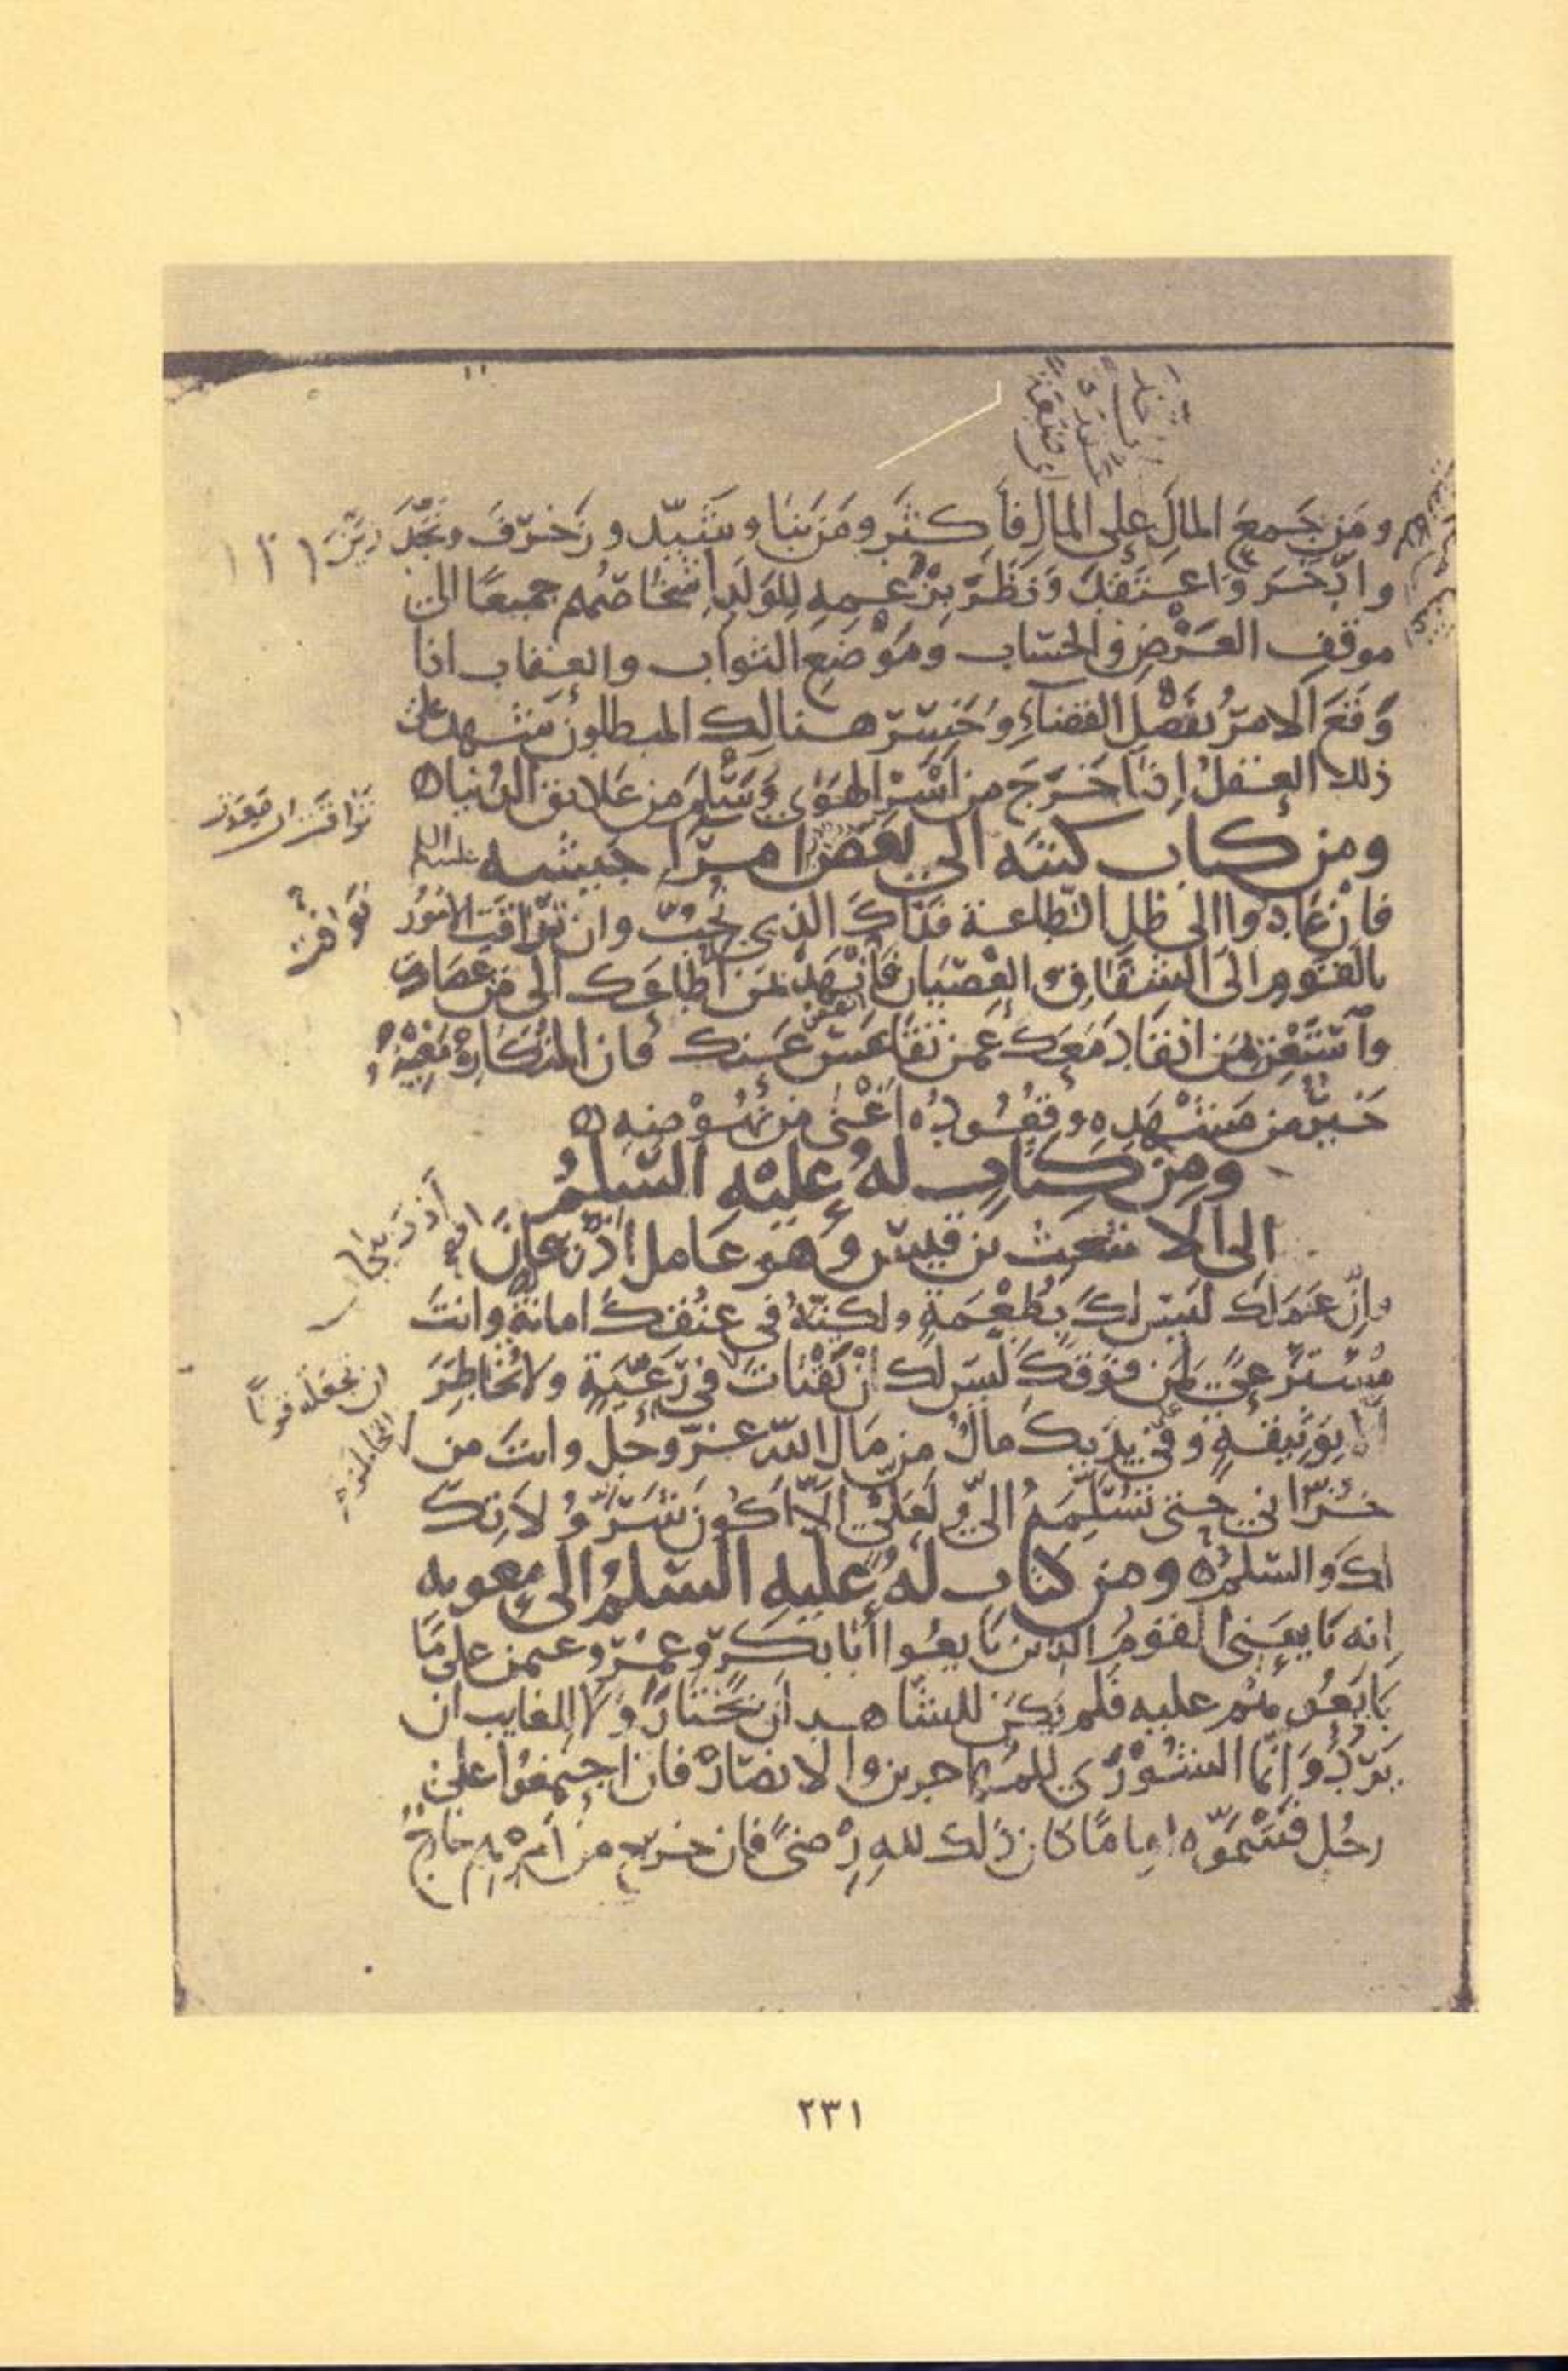 ومن جمع المال على المال فاكثر ومن بنا وشيّد وزخرف ونجّد
وادّخر واعتقد ونظر بزعمه للولد اشخاصهم جميعا الى
موقف العرض والحساب وموضع الثواب والعقاب اذا
وقع الامر بفصل القضاء وخسر هنالك المبطلون شهد على
ذلك العقل اذا خرج من اسر الهوى وسلم من علائق الدنيا
ومن كتاب كتبه الى بعض امراء جيشه
فان عادوا الى ظل الطاعة فذاك الذي نحب وان توافت الامور
بالقوم الى الشقاق والعصيان فانهد بمن اطاعك الى من عصاك
واستغن بمن انقاد معك عمن تقاعس عنك فان المتكاره مغيبه
خير من مشهده وقعوده اغنى من نهوضه
ومن كتاب له عليه السلم
الى الاشعث بن قيس وهو عامل اذربيجان
وانّ عملك ليس لك بطعمة ولكنّه في عنقك امانة وانت
مسترعى لمن فوقك ليس لك ان تفتات في رعيّة ولا تخاطر
الا بوثيقة وفي يديك مال من مال الله عز وجل وانت من
خزاني حتى تسلمه الي ولعلي الا اكون شر ولاتك
لك والسلم ومن كتاب له عليه السلم الى معويه
انه بايعني القوم الذين بايعوا أبا بكر وعمر وعثمن على ما
بايعوهم عليه فلم يكن للشاهد أن يختار ولا للغايب ان
يردّ وانما الشورى للمهاجرين والانصار فان اجتمعوا على
رجل فسمّوه اماما كان ذلك لله رضىً فان خرج من امرهم خارج
توافت
اذربيجان
ان تجعله قوتاً
٢٣١